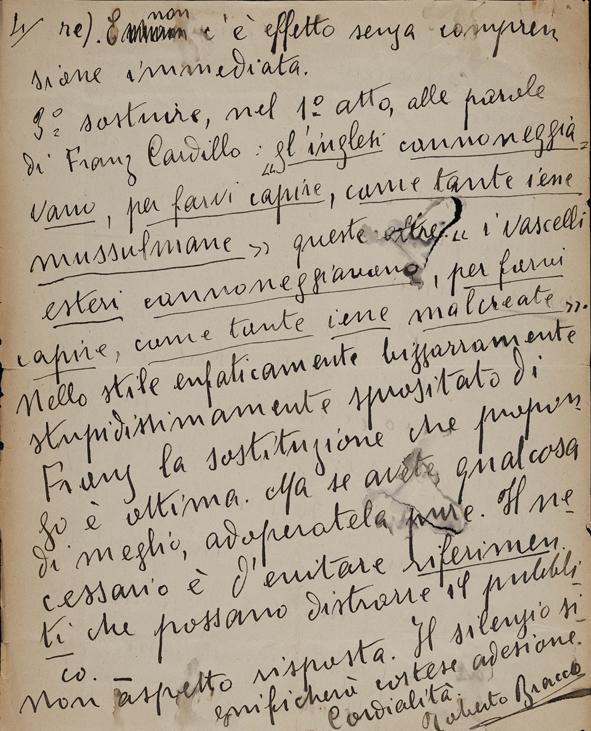 4/ re). E non c'è effetto senza compren
sione immediata.
3º sostuire, nel 1º atto, alle parole
di Franz Cardillo: "gl'inglesi cannoneggia=
vano, per farvi capire, come tante iene
mussulmane» queste altre: " i vascelli
esteri cannoneggiavano, per farvi
capire, come tante iene malcreate».
Nello stile enfaticamente bizzarramente
stupidissimamente spropositato di
Franz la sostituzione che propon
go è ottima. Ma se avete qualcosa
di meglio, adoperatela pure. Il ne=
cessario è d'evitare riferimen
ti che possano distrarre il pubbli
co.
Non aspetto risposta. Il silenzio si
gnificherà cortese adesione.
Cordialità.
Roberto Bracco